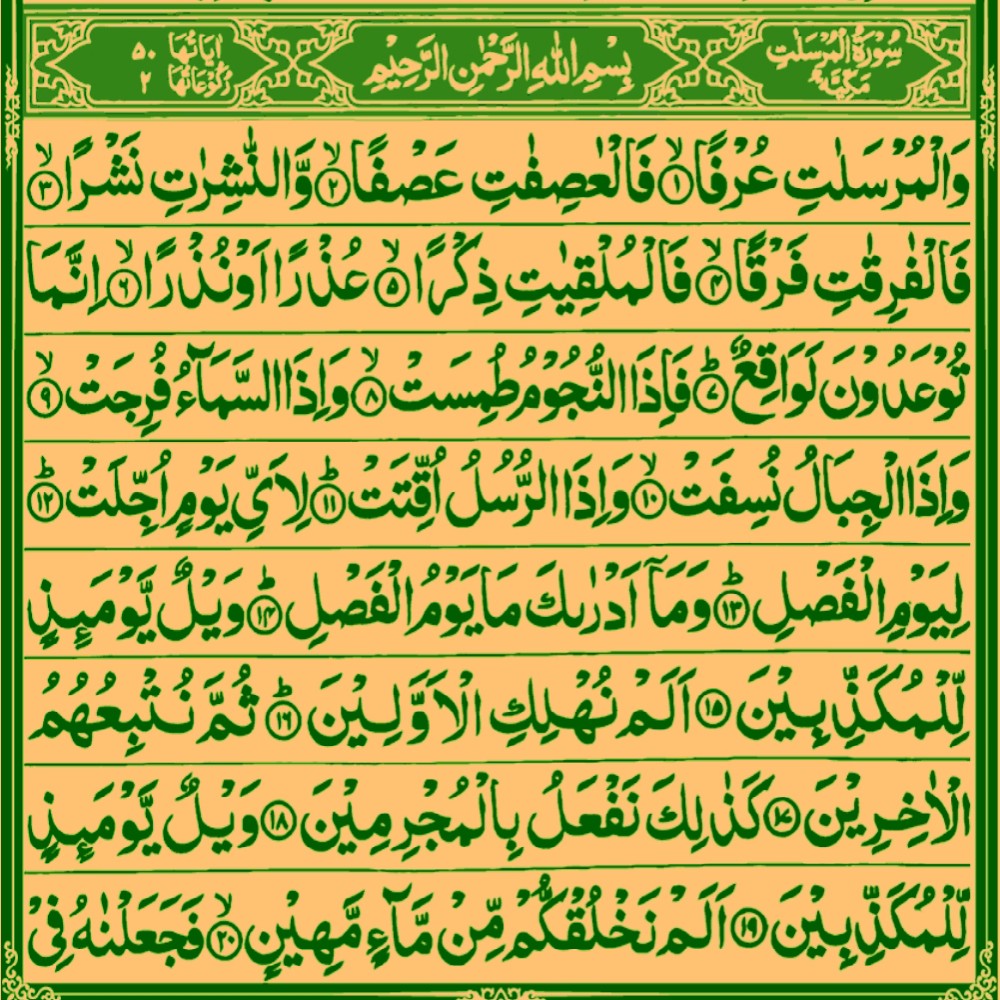 سُوْرَةُ الْمُرْسَلٰتِ مَكِّيَّةٌ
بِسْمِ اللهِ الرَّحْمٰنِ الرَّحِيْمِ
اٰيَاتُهَا ۵۰
رُكُوْعَاتُهَا ۲
وَالْمُرْسَلٰتِ عُرْفًا ۙ﴿۱﴾ فَالْعٰصِفٰتِ عَصْفًا ۙ﴿۲﴾ وَّالنّٰشِرٰتِ نَشْرًا ۙ﴿۳﴾
فَالْفٰرِقٰتِ فَرْقًا ۙ﴿۴﴾ فَالْمُلْقِيٰتِ ذِكْرًا ۙ﴿۵﴾ عُذْرًا اَوْ نُذْرًا ۙ﴿۶﴾ اِنَّمَا
تُوْعَدُوْنَ لَوَاقِعٌ ؕ﴿۷﴾ فَاِذَا النُّجُوْمُ طُمِسَتْ ۙ﴿۸﴾ وَاِذَا السَّمَآءُ فُرِجَتْ ۙ﴿۹﴾
وَاِذَا الْجِبَالُ نُسِفَتْ ۙ﴿۱۰﴾ وَاِذَا الرُّسُلُ اُقِّتَتْ ؕ﴿۱۱﴾ لِاَيِّ يَوْمٍ اُجِّلَتْ ؕ﴿۱۲﴾
لِيَوْمِ الْفَصْلِ ؕ﴿۱۳﴾ وَمَآ اَدْرٰىكَ مَا يَوْمُ الْفَصْلِ ؕ﴿۱۴﴾ وَيْلٌ يَّوْمَىِٕذٍ
لِّلْمُكَذِّبِيْنَ ﴿۱۵﴾ اَلَمْ نُهْلِكِ الْاَوَّلِيْنَ ؕ﴿۱۶﴾ ثُمَّ نُتْبِعُهُمُ
الْاٰخِرِيْنَ ﴿۱۷﴾ كَذٰلِكَ نَفْعَلُ بِالْمُجْرِمِيْنَ ﴿۱۸﴾ وَيْلٌ يَّوْمَىِٕذٍ
لِّلْمُكَذِّبِيْنَ ﴿۱۹﴾ اَلَمْ نَخْلُقْكُّمْ مِّنْ مَّآءٍ مَّهِيْنٍ ۙ﴿۲۰﴾ فَجَعَلْنٰهُ فِيْ